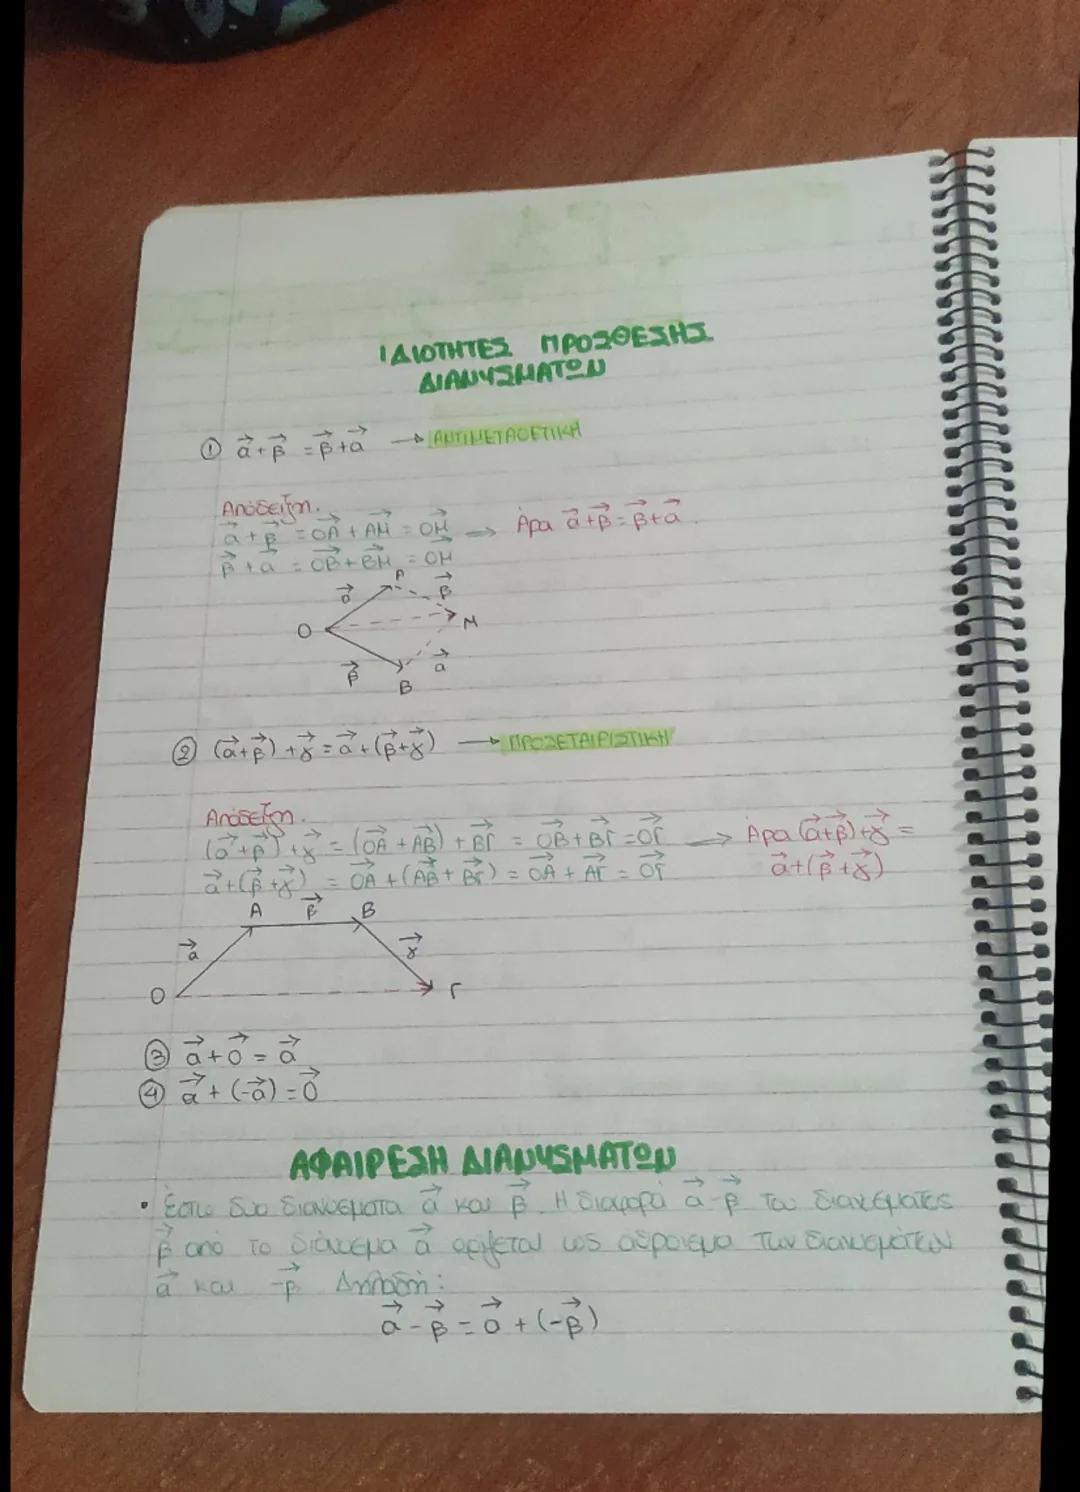 ΙΔΙΟΤΗΤΕΣ ΠΡΟΣΘΕΣΗΣ
ΔΙΑΝΥΣΜΑΤΩΝ
① α⃗+β⃗ = β⃗+α⃗ → ΑΝΤΙΜΕΤΑΘΕΤΙΚΗ
Απόδειξη.
α⃗+β⃗ = ΟΑ⃗ + ΑΜ⃗ = ΟΜ⃗ → Άρα α⃗+β⃗ = β⃗+α⃗.
β⃗+α⃗ = ΟΒ⃗ + ΒΜ⃗ = ΟΜ⃗
α⃗ Α β⃗
Ο Μ
β⃗ Β α⃗
② (α⃗+β⃗)+γ⃗ = α⃗+(β⃗+γ⃗) → ΠΡΟΣΕΤΑΙΡΙΣΤΙΚΗ
Απόδειξη.
(α⃗+β⃗)+γ⃗ = (ΟΑ⃗ + ΑΒ⃗) + ΒΓ⃗ = ΟΒ⃗ + ΒΓ⃗ = ΟΓ⃗ → Άρα (α⃗+β⃗)+γ⃗ =
α⃗+(β⃗+γ⃗) = ΟΑ⃗ + (ΑΒ⃗ + ΒΓ⃗) = ΟΑ⃗ + ΑΓ⃗ = ΟΓ⃗ α⃗+(β⃗+γ⃗)
Α β⃗ Β
α⃗ γ⃗
Ο Γ
③ α⃗+0⃗ = α⃗
④ α⃗+(-α⃗) = 0⃗
ΑΦΑΙΡΕΣΗ ΔΙΑΝΥΣΜΑΤΩΝ
• Έστω δυο διανύσματα α⃗ και β⃗. Η διαφορά α⃗-β⃗ του διανύσματος
β⃗ από το διάνυσμα α⃗ ορίζεται ως άθροισμα των διανυσμάτων
α⃗ και -β⃗ Δηλαδή:
α⃗-β⃗ = α⃗+(-β⃗)